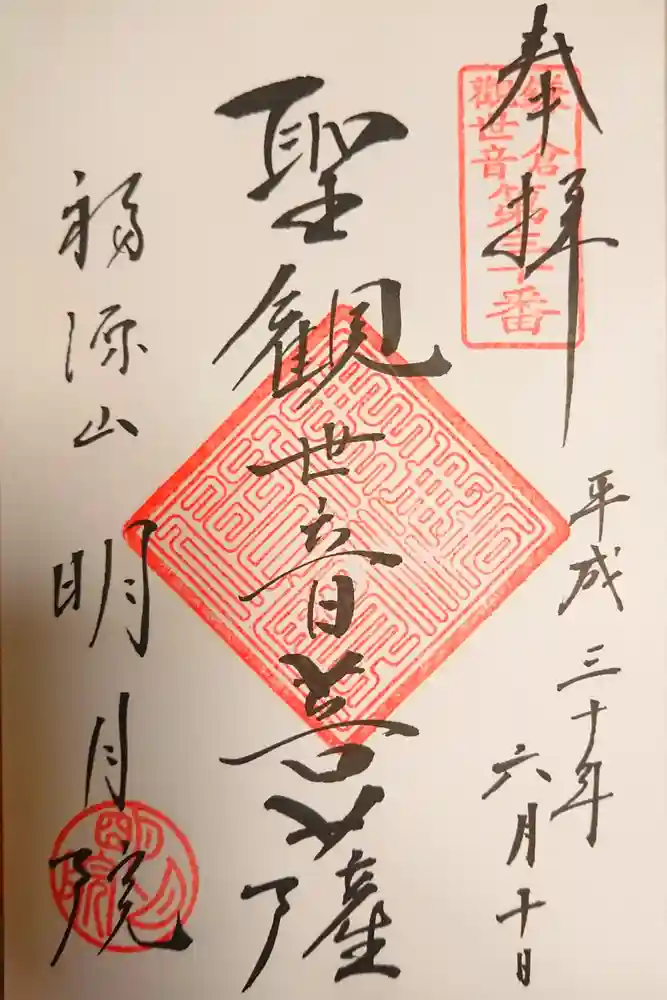 奉拝
鎌倉
觀世音第三十番
平成三十年
六月十日
聖観世音菩薩
福源山
明月院
明月院